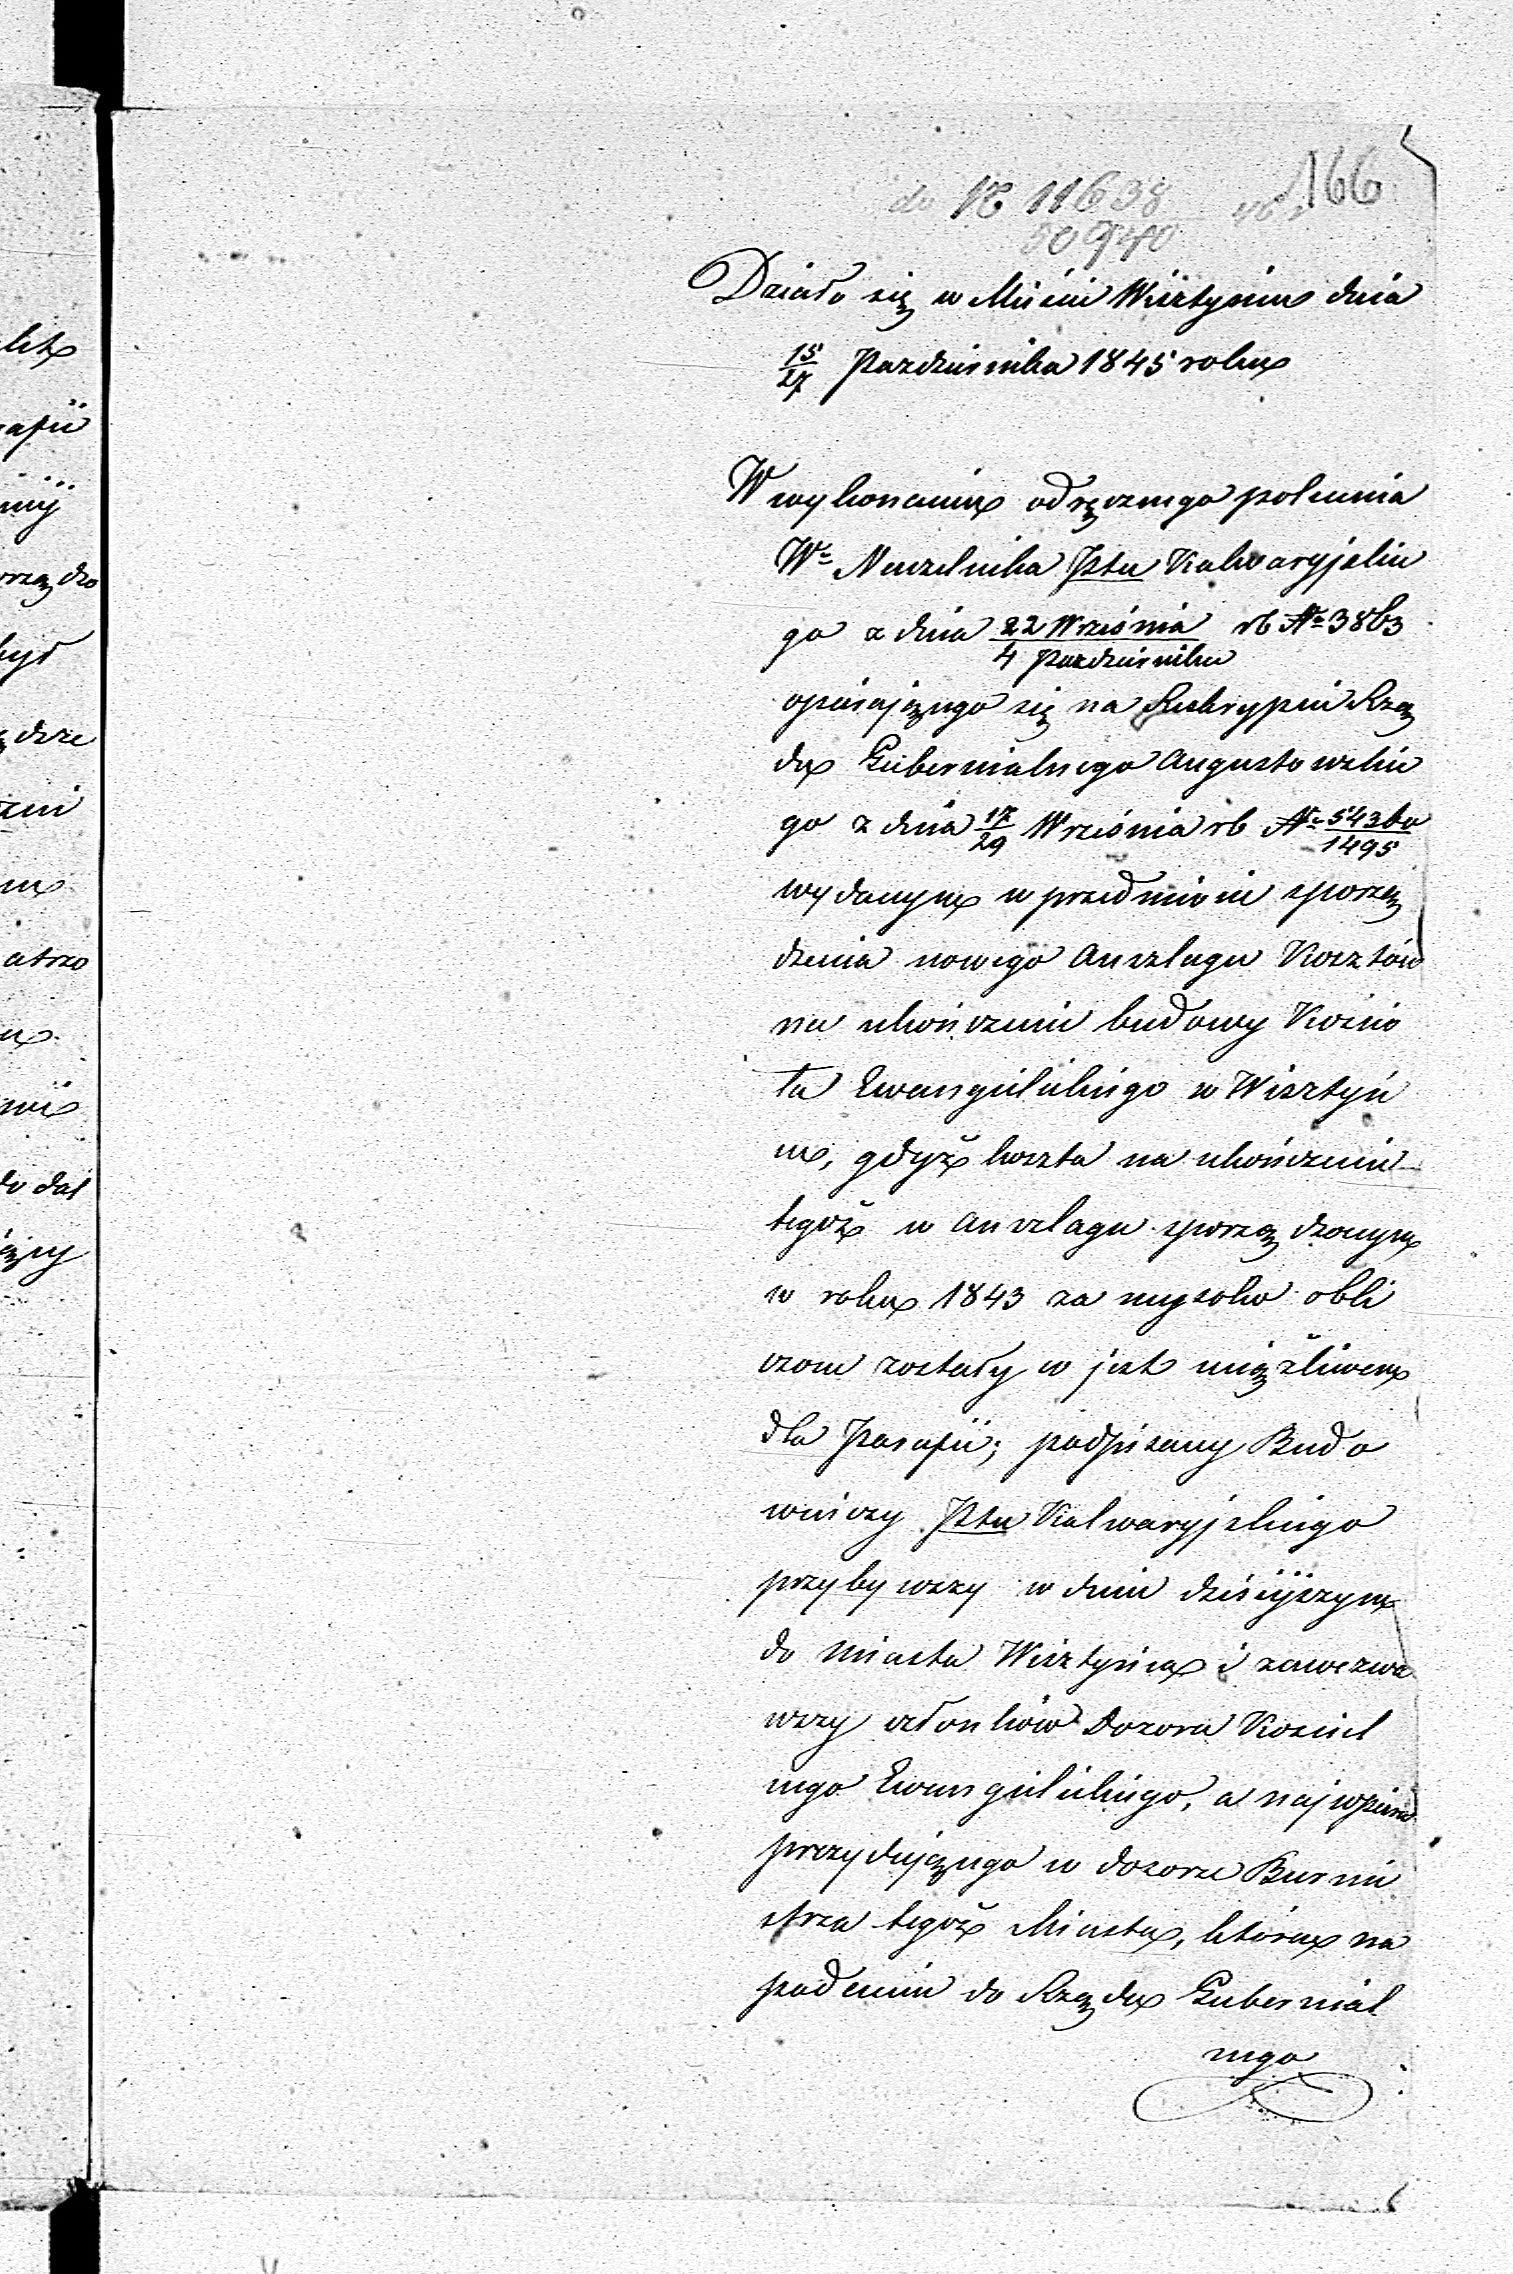 166
do N 11638
50940
Działo się w Mieście Wisztyńcu dnia
15/27 Października 1845 roku
W wykonaniu odręcznego polecenia
Wo Naczelnika Ptu Kalwaryjskie
go z dnia 22 Września / 4 Października rb No 3863
opierającego się na Reskrypcie Rzą
du Gubernialnego Augustowskie
go z dnia 17/29 Września rb No 54360/1495
wydanym w przedmiocie sporzą
dzenia nowego Anszlagu Kosztów
na ukończenie budowy Kościo
ła Ewangielickiego w Wisztyń
cu, gdyż koszta na ukończenie
tegoż w Anszlagu sporządzonym
w roku 1843 za wysoko obli
czone zostały w jest uciążliwem
dla Parafii; podpisany Budo
wniczy Ptu Kalwaryjskiego
przybywszy w dniu dzisiejszym
do Miasta Wisztyńca i zawezwa
wszy członków Dozoru Kościel
nego Ewangielickiego, a najwpierw
prezydującego w dozorze Burmi
strza tegoż Miasta, która na
podaniu do Rządu Gubernial
nego